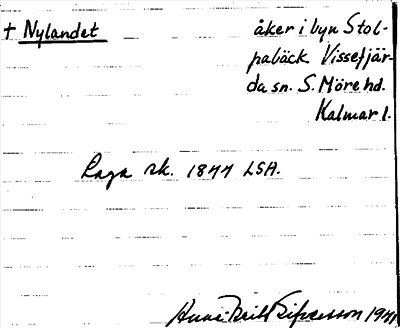 † Nylandet åker i byn Stol-
pabäck. Vissefjär-
da sn. S. Möre hd.
Kalmar l.
Laga sk. 1844 LSA.
Anna-Britt 1941